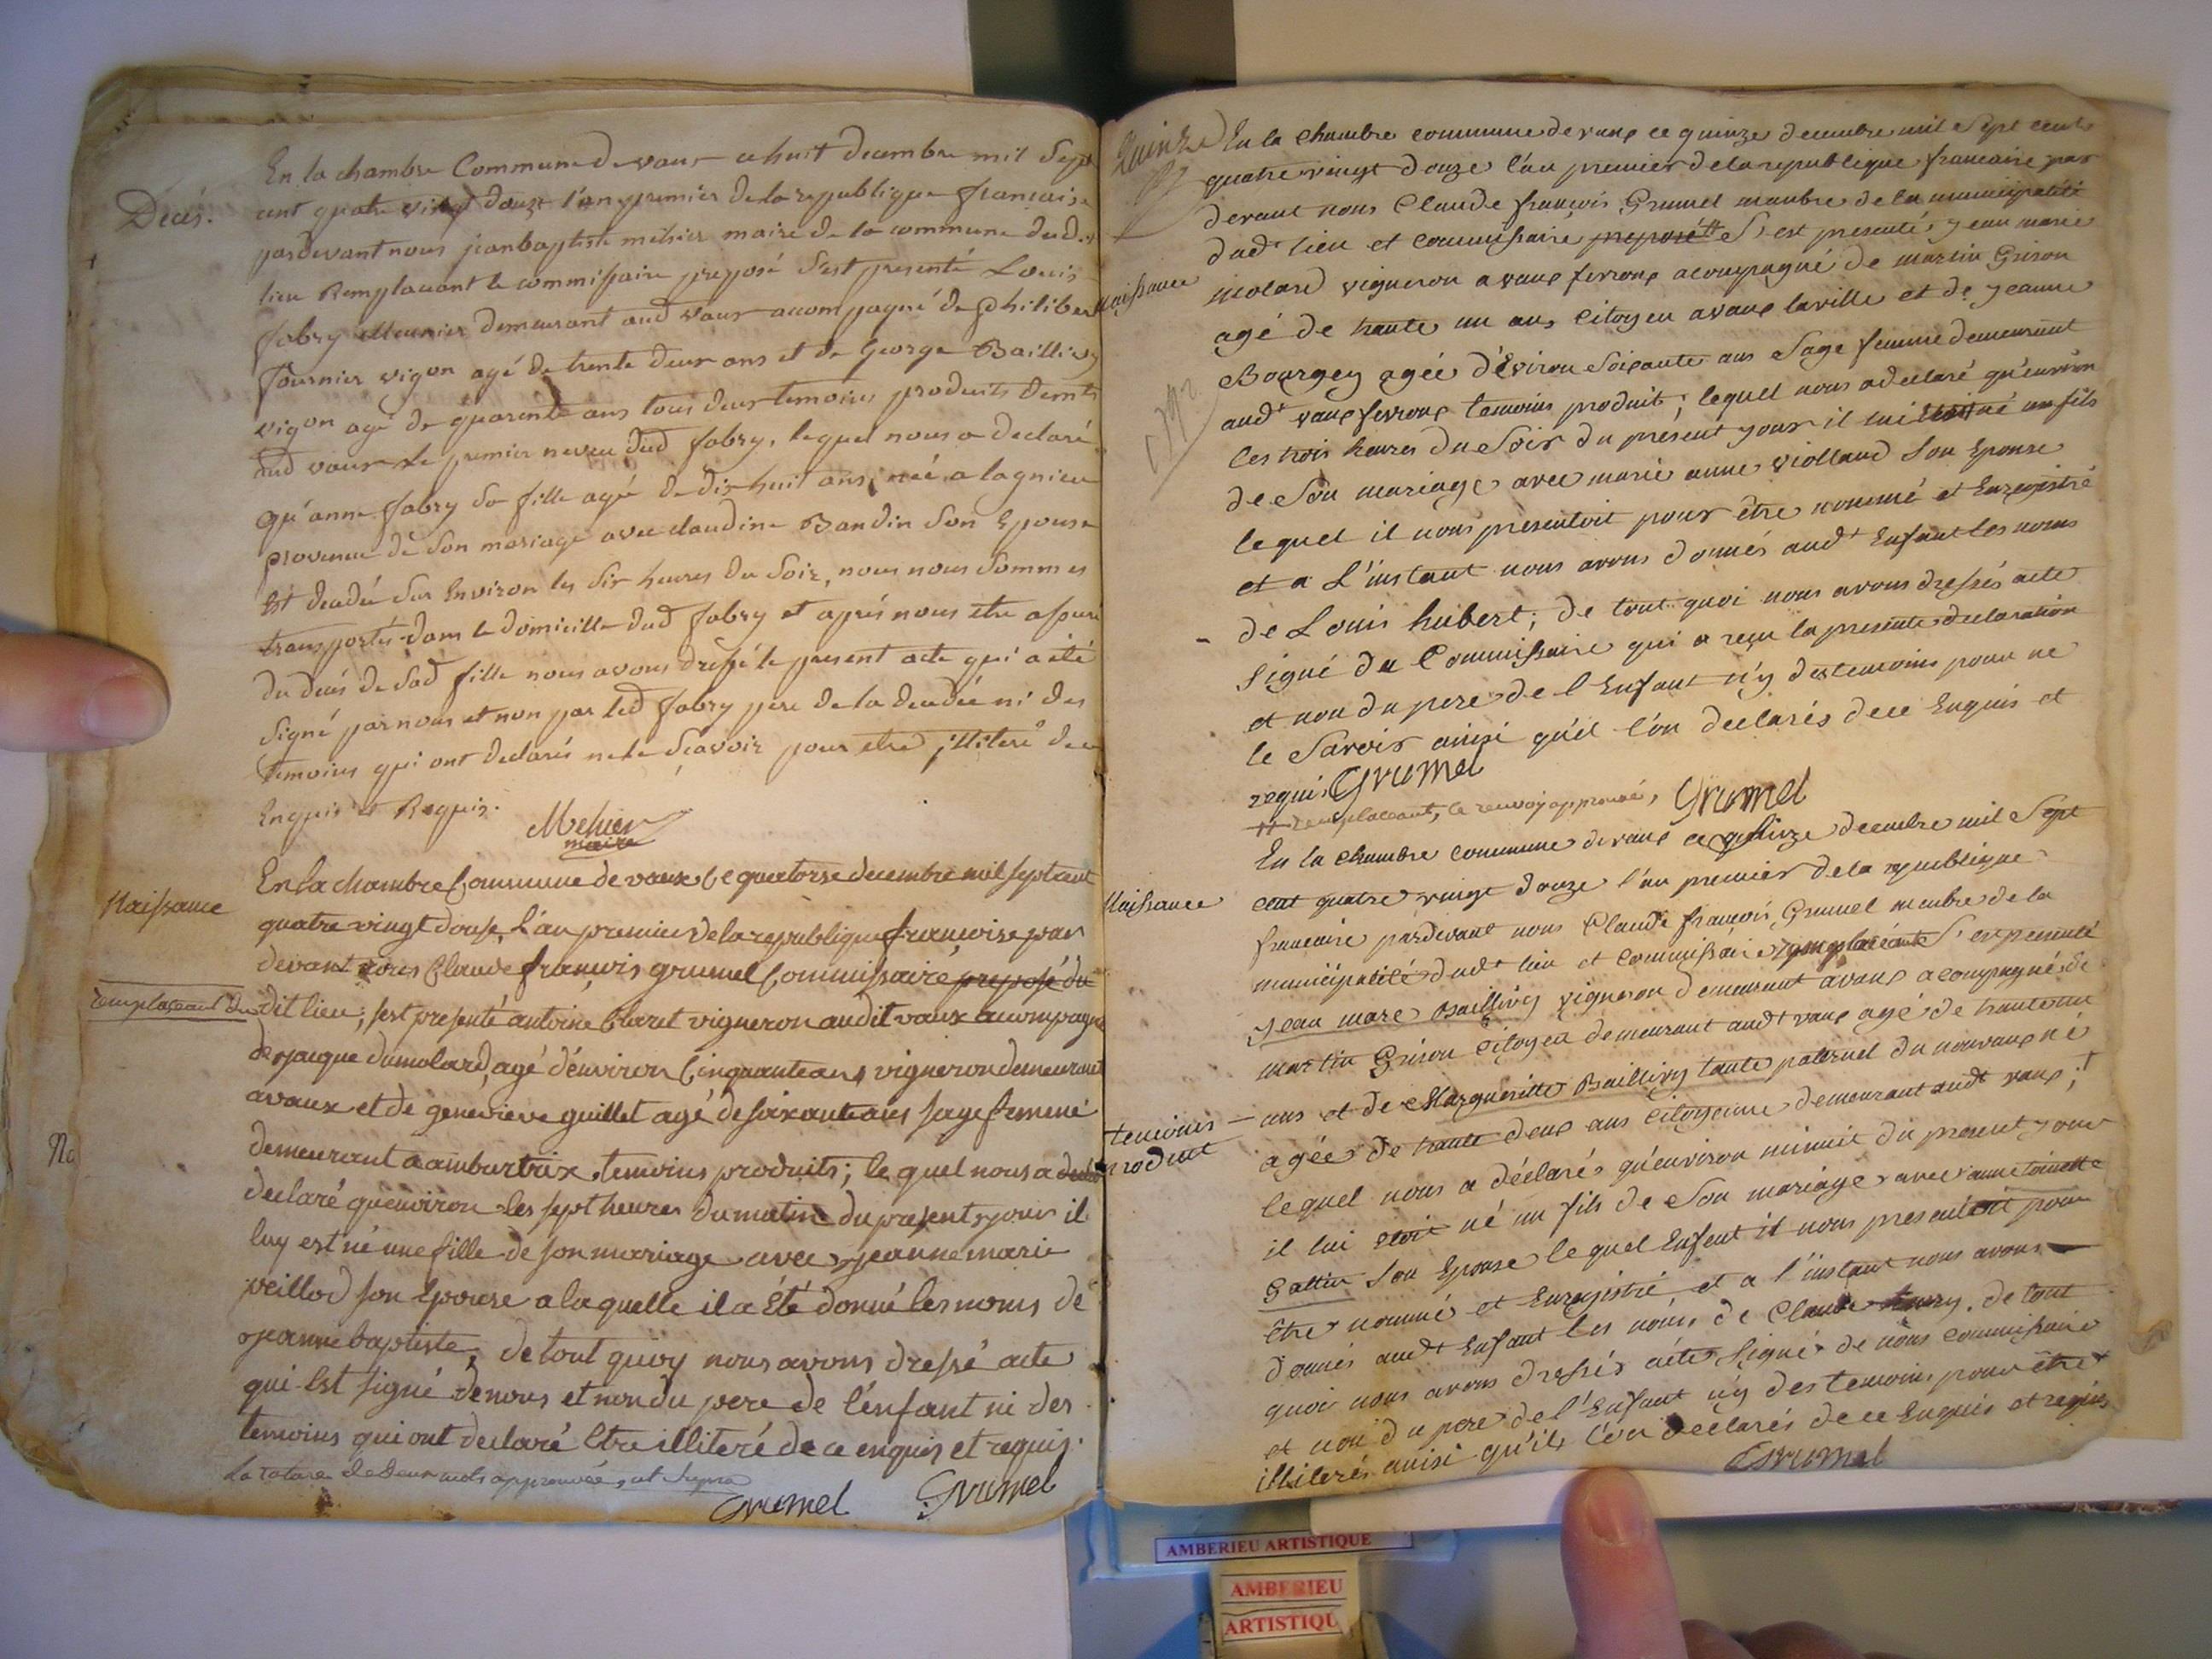 Décès.
En la chambre Commune de vaux ce huit decembre mil Sept
cent quatre vingt douze l'an premier de la republique francaise
pardevant nous jean baptiste mehier maire de la commune dud.
lieu Remplacant le commissaire preposé S'est presenté Louis
fabry Meunier demeurant aud vaux accompagné de philibert
fournier vigon agé de trente deux ans et de George Baillivy
vigon agé de quarente ans tous deux temoins produits demts
aud vaux le premier neveu dud fabry, lequel nous a declaré
qu'anne fabry sa fille agé de dix huit ans née a lagnieu
provenue de Son mariage avec claudine Bandin Son Epouse
Est decedée Sur Environ les Six heures du Soir, nous nous Sommes
transportés dans le domicille dud fabry et aprés nous etre assuré
du decés de Sad fille nous avons dressé le present acte qui a eté
Signé par nous et non par led fabry pere de la decedée ni des
temoins qui ont declarés ne le Sçavoir pour etre illiteré de ce
Enquis et Requis.
Mehier
maire
Naissance
En la chambre Commune de vaux ce quatorze decembre mil sept cent
quatre vingt douse, L'an premier de la republique françoise par
devant nous Claude françois grumel Commissaire preposé du
remplaceant du dit lieu; s'est presenté antoine Claret vigneron audit vaux acompagné
de jacque dumolard, agé d'environ Cinquante ans vigneron demeurant
avaux et de genevieve guillet agé de soixante ans sage femme
demeurant a ambutrix, temoins produits; le quel nous a
declaré quenviron les sept heures du matin du present jour il
luy est né une fille de son mariage avec jeanne marie
veillod son Epouse a laquelle il a été donné les noms de
jeanne baptiste; de tout quoy nous avons dressé acte
qui Est signé de nous et non du pere de l'enfant ni des
temoins qui ont declaré Etre illiteré de ce enquis et requis.
la rature de deux mots approuvée, ut Supra
Grumel Grumel
Quinze
En la Chambre commune de vaux ce quinze decembre mil Sept cent
quatre vingt douze l'an premier de la republique francaise par
devant nous Claude françois Grumel manbre de la municipalité
dudt lieu et commissaire preposé S'est presenté jean marie
Naissance
molard vigneron a vaux fevroux acompagné de martin Grison
agé de trante un ans citoyen avaux laville et de jeanne
Bourgey agée d'Eviron Soixante ans Sage femme demeurant
1792
audt vaux fevroux temoins produit; lequel nous a declaré qu'environ
les trois heures du Soir du présent jour il lui né un fils
de Son mariage avec marie anne violland Son Epouse
lequel il nous presentoit pour être nommé et Enregistré
et a L'instant nous avons donnés audt Enfant les noms
de Louis hubert; de tout quoi nous avons dressés acte
signé du Commissaire qui a reçu la presente declaration
et non du pere de l'Enfant n'y des temoins pour ne
le Savoir ainsi qu'il l'on declarés de ce Enquis et
requis Grumel
remplaceant, le renvoy approuvé, Grumel
Naissance
En la chambre commune de vaux ce quinze decembre mil Sept
cent quatre vingt douze l'an premier de la republique
francaise pardevant nous Claude francois Grumel menbre de la
municipalité dudt lieu et commissaire remplaceante S'est presenté
jean marc Baillivy vigneron demeurant avaux acompagné de
martin Grison Citoyen demeurant audt vaux agé de trante un
ans et de Margueritte Baillivy tante paternel du nouveaux né
temoins produit
agée de trante deux ans citoyenne demeurant audt vaux;
lequel nous a déclaré qu'environ minuit du present jour
il lui etoit né un fils de Son mariage avec anne toinette
Gattin Son Epouse lequel Enfent il nous presentoit pour
être nommé et Enregistré et a l'instant nous avons
donnés audt Enfant les noms de Claude. de tout
quoi nous avons dressés acte signé de nous commissaire
et non du pere de l'Enfant n'y des temoins pour être
illiterés ainsi qu'ils l'on declarés de ce Enquis et requis
Grumel
AMBERIEU ARTISTIQUE
AMBERIEU
ARTISTIQU